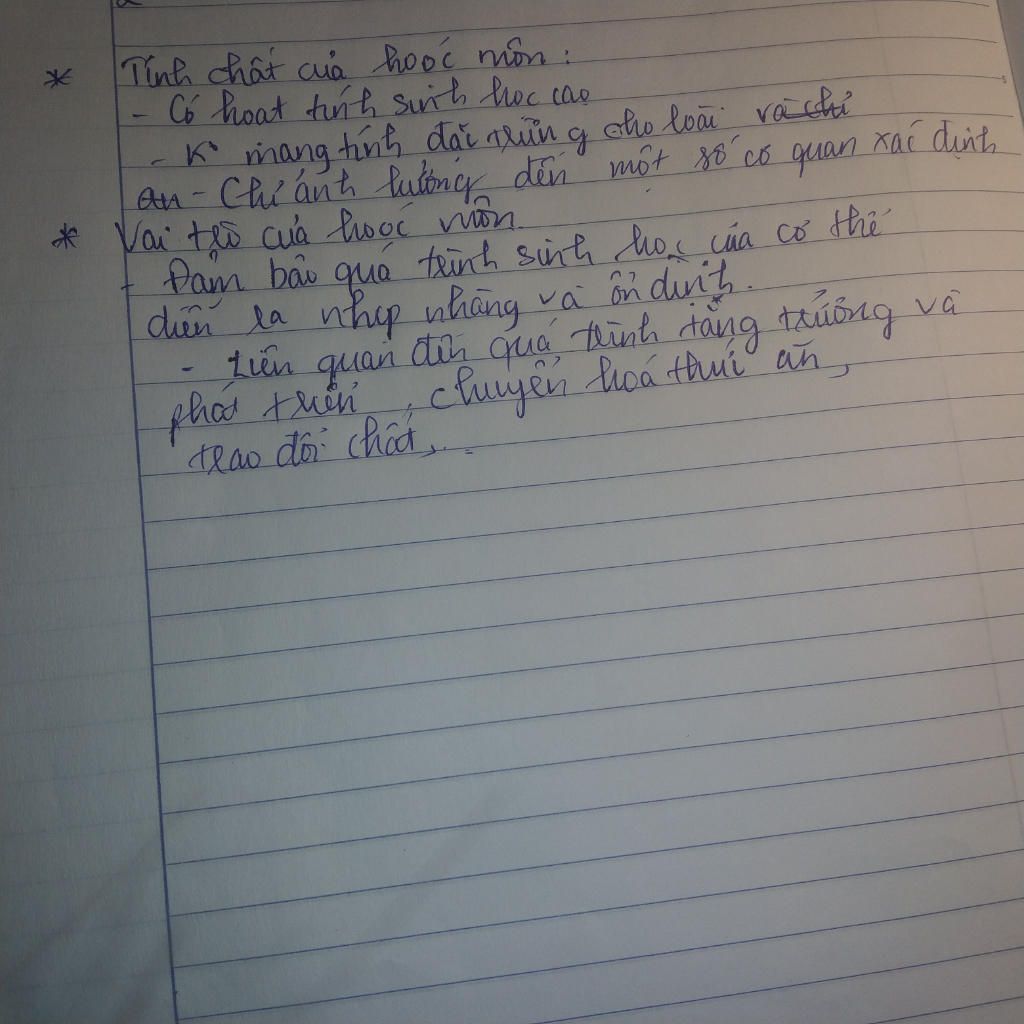 * Tính chất của hoóc môn:
- Có hoạt tính sinh học cao
- Ko mang tính đặc trưng cho loài và chỉ
an - Chỉ ảnh hưởng đến một số cơ quan xác định
* Vai trò của hoóc môn.
- Đảm bảo quá trình sinh học của cơ thể
diễn ra nhịp nhàng và ổn định.
- Liên quan đến quá trình tăng trưởng và
phát triển, chuyển hoá thức ăn,
trao đổi chất,...